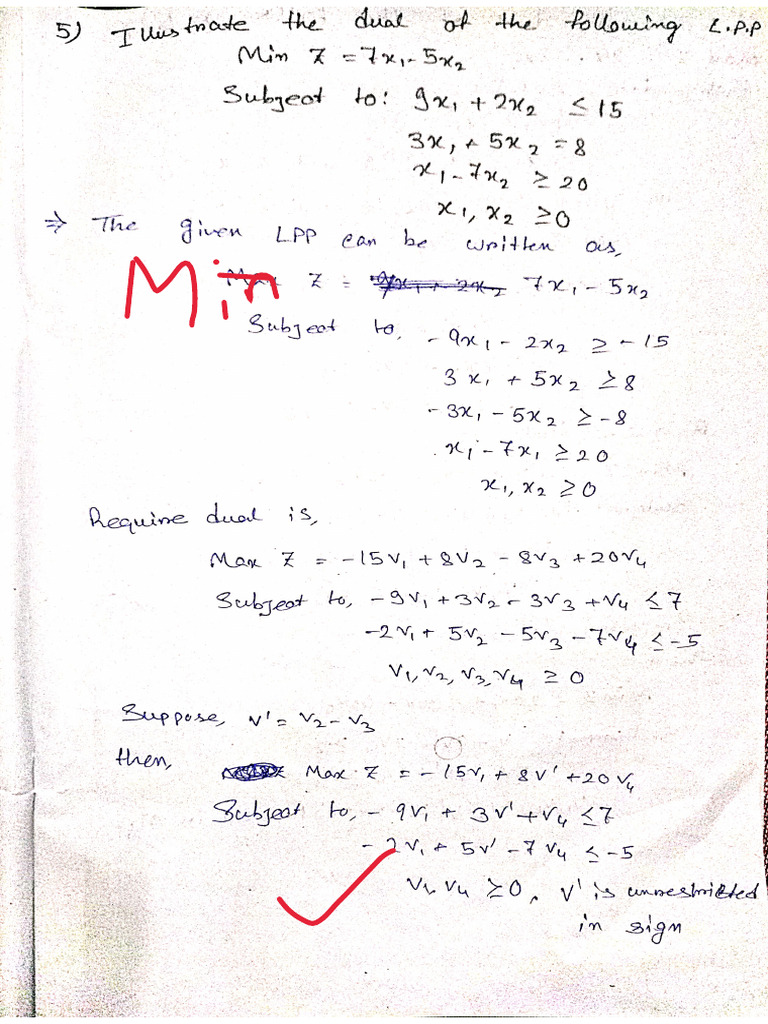 5) Illustrate the dual of the following L.P.P
Min Z = 7x₁ - 5x₂
Subject to: 9x₁ + 2x₂ ≤ 15
3x₁ + 5x₂ = 8
x₁ - 7x₂ ≥ 20
x₁, x₂ ≥ 0
⇒ The given LPP can be written as,
Min Z = 7x₁ - 5x₂
Subject to, -9x₁ - 2x₂ ≥ -15
3x₁ + 5x₂ ≥ 8
-3x₁ - 5x₂ ≥ -8
x₁ - 7x₁ ≥ 20
x₁, x₂ ≥ 0
Require dual is,
Max Z = -15v₁ + 8v₂ - 8v₃ + 20v₄
Subject to, -9v₁ + 3v₂ - 3v₃ + v₄ ≤ 7
-2v₁ + 5v₂ - 5v₃ - 7v₄ ≤ -5
v₁, v₂, v₃, v₄ ≥ 0
Suppose, v' = v₂ - v₃
then, Max Z = -15v₁ + 8v' + 20v₄
Subject to, -9v₁ + 3v' + v₄ ≤ 7
-2v₁ + 5v' - 7v₄ ≤ -5
v₁, v₄ ≥ 0, v' is unrestricted
in sign